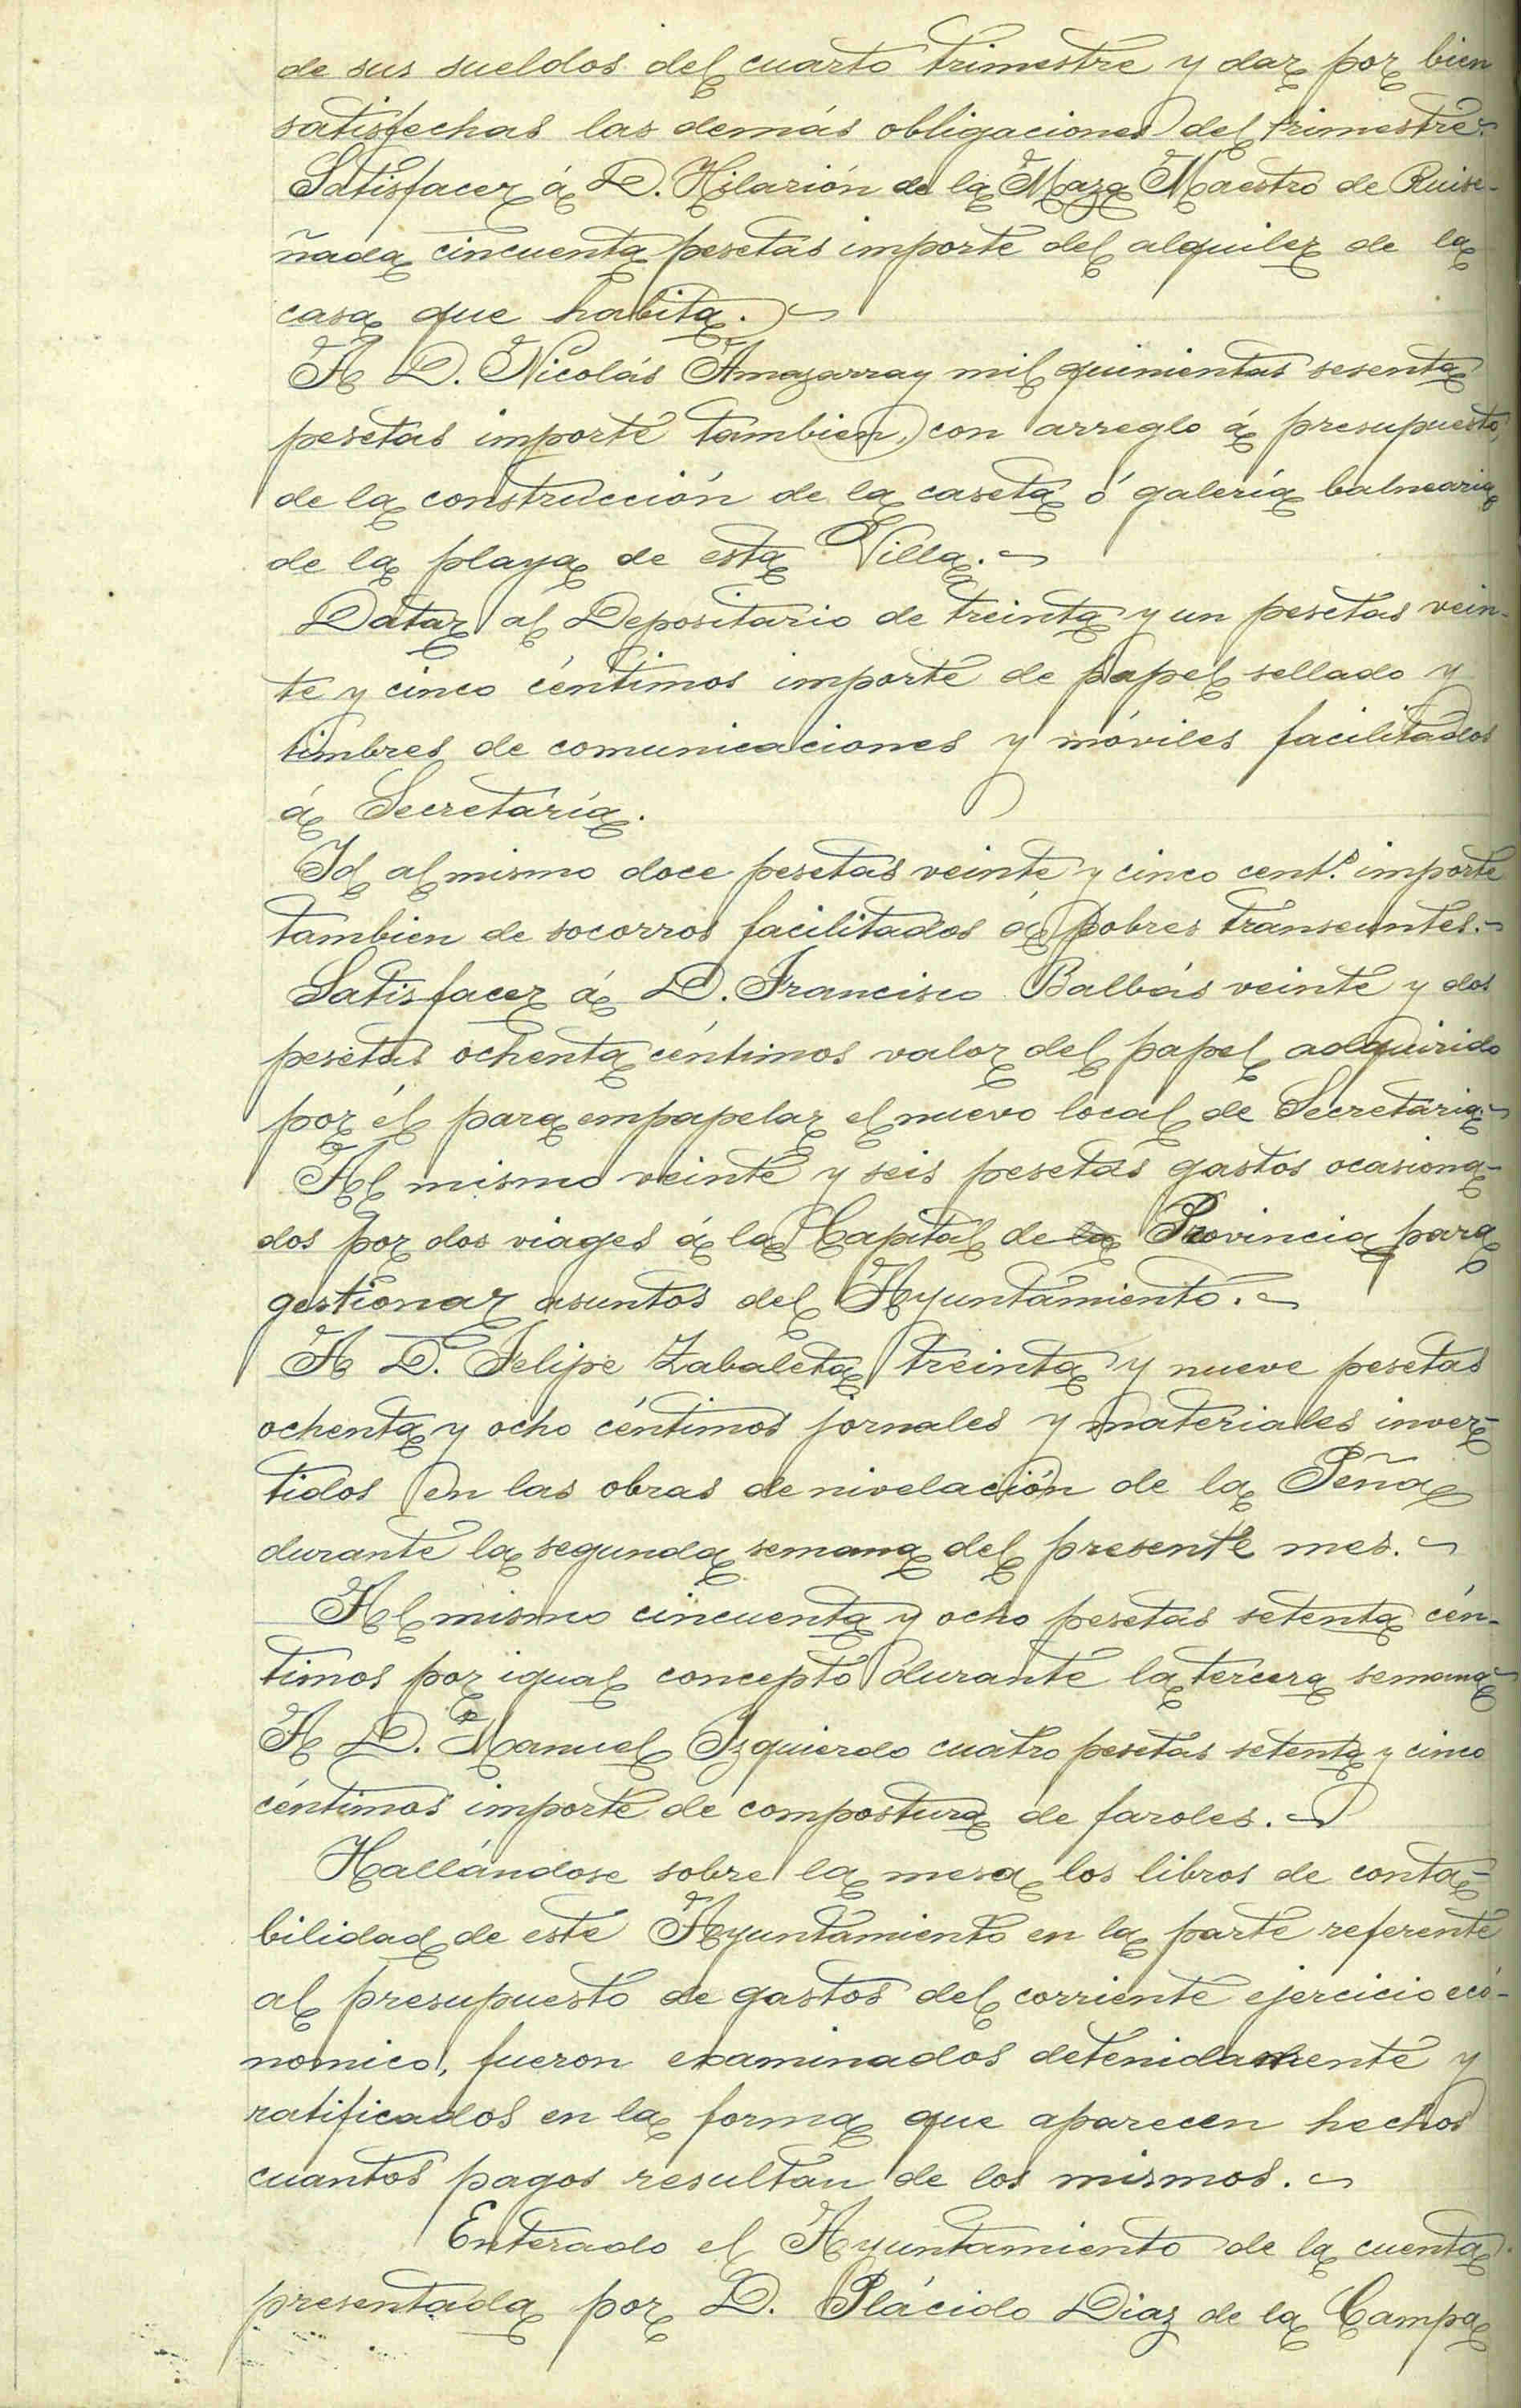 de sus sueldos del cuarto trimestre y dar por bien
satisfechas las demás obligaciones del trimestre.
Satisfacer á D. Hilarión de la Maza Maestro de Ruise-
ñada cincuenta pesetas importe del alquiler de la
casa que habita.
A D. Nicolás Amazarray mil quinientas sesenta
pesetas importe tambien, con arreglo á presupuesto,
de la construcción de la caseta ó galería balnearia
de la playa de esta Villa.
Datar al Depositario de treinta y un pesetas vein-
te y cinco céntimos importe de papel sellado y
timbres de comunicaciones y móviles facilitados
á Secretaría.
Id al mismo doce pesetas veinte y cinco cent.s importe
tambien de socorros facilitados á pobres transeuntes.
Satisfacer á D. Francisco Balbás veinte y dos
pesetas ochenta céntimos valor del papel adquirido
por él para empapelar el nuevo local de Secretaria.
Al mismo veinte y seis pesetas gastos ocasiona-
dos por dos viages á la Capital de la Provincia para
gestionar asuntos del Ayuntamiento.
A D. Felipe Zabaleta treinta y nueve pesetas
ochenta y ocho céntimos jornales y materiales inver-
tidos en las obras de nivelación de la Peña
durante la segunda semana del presente mes.
Al mismo cincuenta y ocho pesetas setenta cén-
timos por igual concepto durante la tercera semana
A D. Manuel Izquierdo cuatro pesetas setenta y cinco
céntimos importe de compostura de faroles.
Hallándose sobre la mesa los libros de conta-
bilidad de este Ayuntamiento en la parte referente
al presupuesto de gastos del corriente ejercicio eco-
nomico, fueron examinados detenidamente y
ratificados en la forma que aparecen hechos
cuantos pagos resultan de los mismos.
Enterado el Ayuntamiento de la cuenta
presentada por D. Plácido Diaz de la Campa